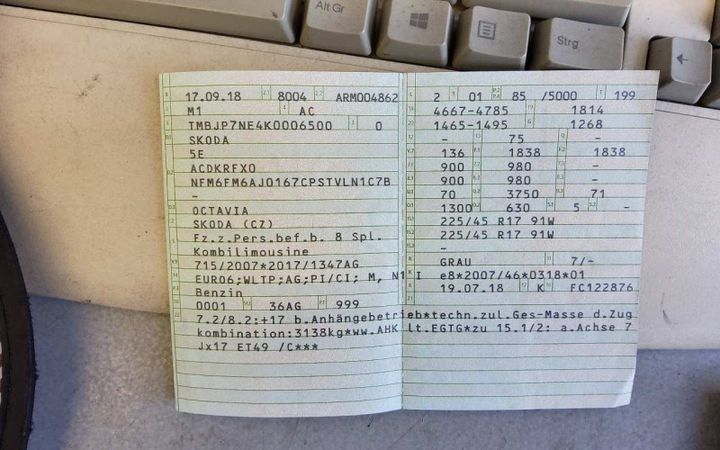 Alt Gr
Strg
17.09.18 8004 ARM004862
M1 AC
TMBJP7NE4K0006500 0
SKODA
5E
ACDKRFX0
NFM6FM6AJ0167CPSTVLN1C7B
-
OCTAVIA
SKODA (CZ)
Fz.z.Pers.bef.b. 8 Spl.
Kombilimousine
715/2007*2017/1347AG
EURO6;WLTP;AG;PI/CI; M, N1 I
Benzin
0001 36AG 999
2 01 85 /5000 199
4667-4785 1814
1465-1495 1268
- 75 -
136 1838 1838
900 980 -
900 980 -
70 3750 71
1300 630 5 -
225/45 R17 91W
225/45 R17 91W
-
GRAU 7/-
e8*2007/46*0318*01
19.07.18 K FC122876
7.2/8.2:+17 b.Anhängebetrieb*techn.zul.Ges-Masse d.Zug
kombination:3138kg*ww.AHK lt.EGTG*zu 15.1/2: a.Achse 7
Jx17 ET49 /C***